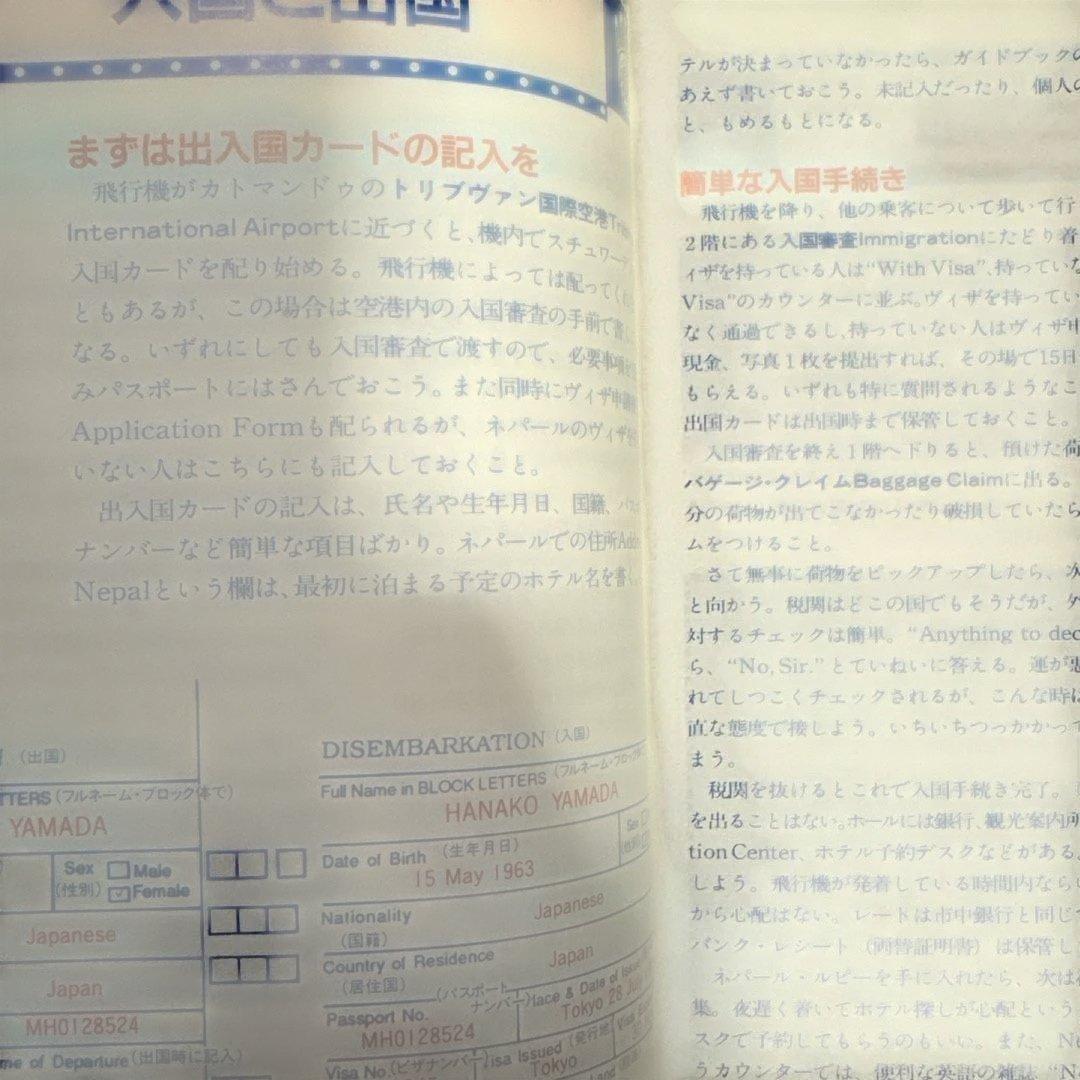 入国と出国
まずは出入国カードの記入を
飛行機がカトマンドゥのトリブヴァン国際空港
International Airportに近づくと、機内でスチュワー
入国カードを配り始める。飛行機によっては配ってく
ともあるが、この場合は空港内の入国審査の手前で書
なる。いずれにしても入国審査で渡すので、必要事項
みパスポートにはさんでおこう。また同時にヴィザ申
Application Formも配られるが、ネパールのヴィザ
いない人はこちらにも記入しておくこと。
出入国カードの記入は、氏名や生年月日、国籍、パス
ナンバーなど簡単な項目ばかり。ネパールでの住所
Nepalという欄は、最初に泊まる予定のホテル名を書
(出国)
TTERS(フルネーム・ブロック体で)
YAMADA
Sex Male
(性別) Female
Japanese
Japan
MH0128524
me of Departure(出国時に記入)
DISEMBARKATION (入国)
Full Name in BLOCK LETTERS (フルネーム・ブロック
HANAKO YAMADA
Sex
Date of Birth (生年月日)
15 May 1963
Nationality
(国籍)
Japanese
Country of Residence
(居住国)
Japan
Passport No. (パスポートナンバー)
MH0128524
lace & Date of Issue
Tokyo 28 July
Visa No.(ビザナンバー)
isa Issued (発行地)
Tokyo
テルが決まっていなかったら、ガイドブックの
あえず書いておこう。未記入だったり、個人の
と、もめるもとになる。
簡単な入国手続き
飛行機を降り、他の乗客について歩いて行
2階にある入国審査Immigrationにたどり着
ィザを持っている人は“With Visa”、持っていな
Visa”のカウンターに並ぶ。ヴィザを持ってい
なく通過できるし、持っていない人はヴィザ申
現金、写真1枚を提出すれば、その場で15日
もらえる。いずれも特に質問されるようなこ
出国カードは出国時まで保管しておくこと。
入国審査を終え1階へ下りると、預けた荷
バゲージ・クレイムBaggage Claimに出る。
分の荷物が出てこなかったり破損していたら
ムをつけること。
さて無事に荷物をピックアップしたら、次
と向かう。税関はどこの国でもそうだが、
対するチェックは簡単。“Anything to dec
ら、“No, Sir.”とていねいに答える。運が悪
れてしつこくチェックされるが、こんな時は
直な態度で接しよう。いちいちつっかかって
まう。
税関を抜けるとこれで入国手続き完了。
を出ることはない。ホールには銀行、観光案内所
tion Center、ホテル予約デスクなどがある。
しよう。飛行機が発着している時間内なら
から心配はない。レートは市中銀行と同じ
バンク・レシート（両替証明書）は保管し
ネパール・ルピーを手に入れたら、次は
集。夜遅く着いてホテル探しが心配という
スクで予約してもらうのもいい。また、Ne
うカウンターでは、便利な英語の雑誌、“N